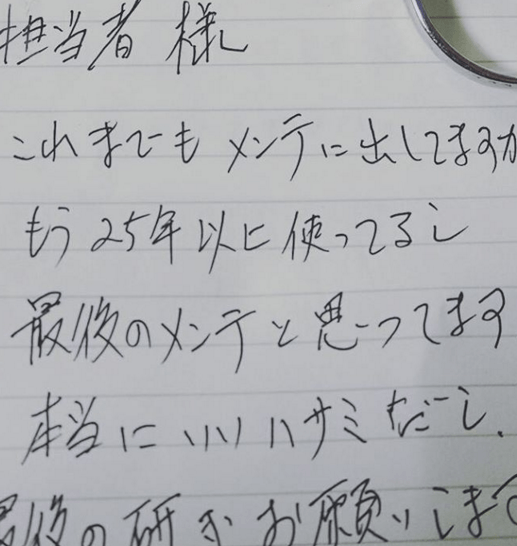 担当者 様
これまでもメンテに出してますが
もう25年以上使ってるし
最後のメンテと思ってます
本当にいいハサミだし、
最後の研ぎお願いします